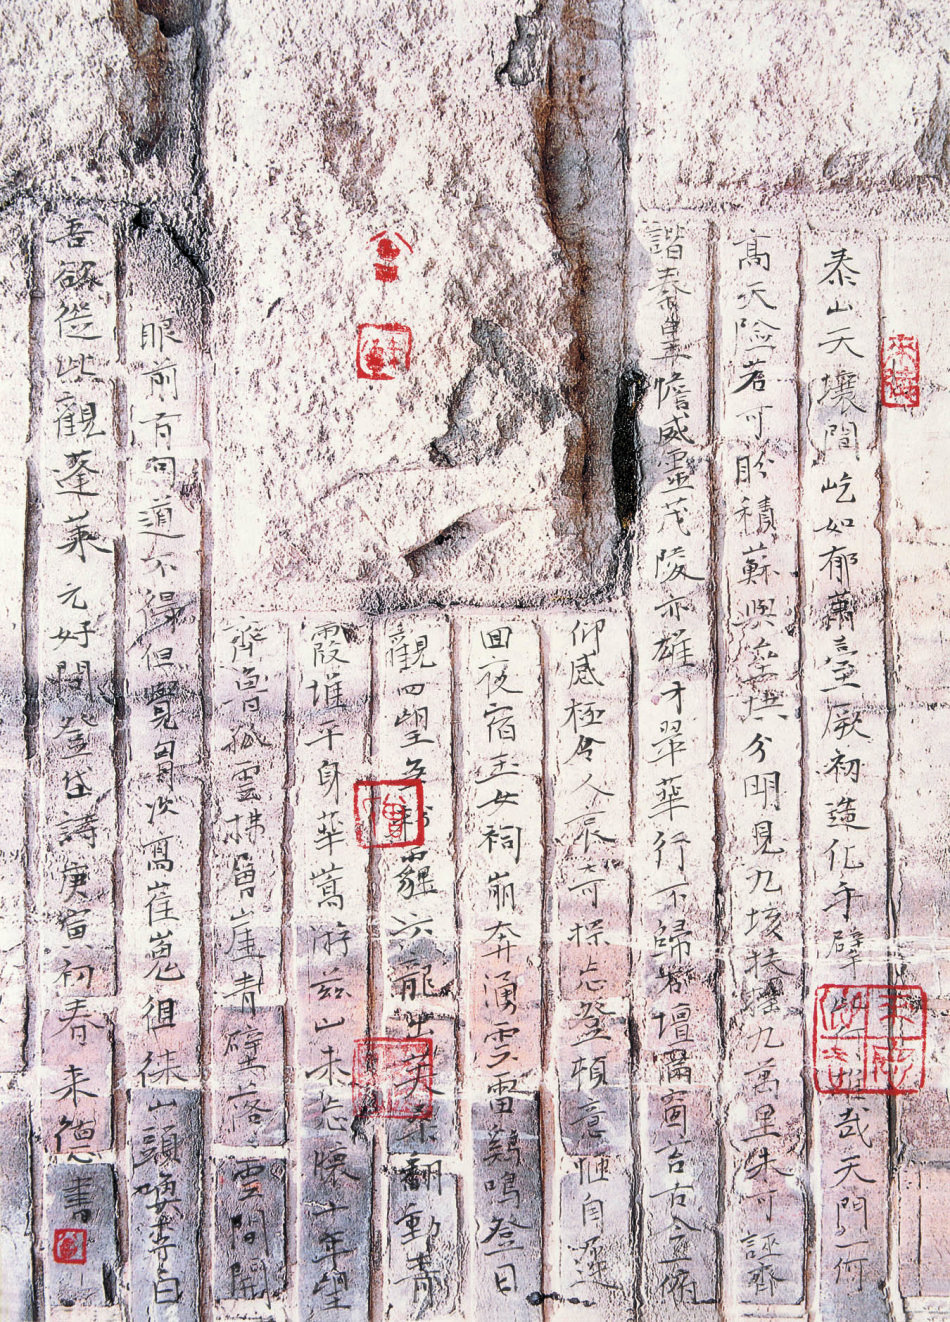 泰山天壤間屹如郁蕭臺厥初造化手劈此雄哉天門一何
高天险若可盼積蘇與塊分明見九垓扶搖九萬里未可誣齊
諧秦皇憺威靈茂陵亦雄才翠華行不歸石壇滿蒼苔古今一俯
仰感極令人哀奇探忘登頓意愜自遲
回夜宿玉女祠崩奔湧雲雷鷄鳴登日
觀四望無氛霾六龍出扶桑翻動青
霞堆平身華嵩游兹山未忘懷十年望
齊魯孤雲拂層崖青壁落雲間開
眼前有句道不得但覺胸次高崔嵬徂徠山頭喚李白
吾欲從此觀蓬萊元好問登岱詩庚寅初春来德書